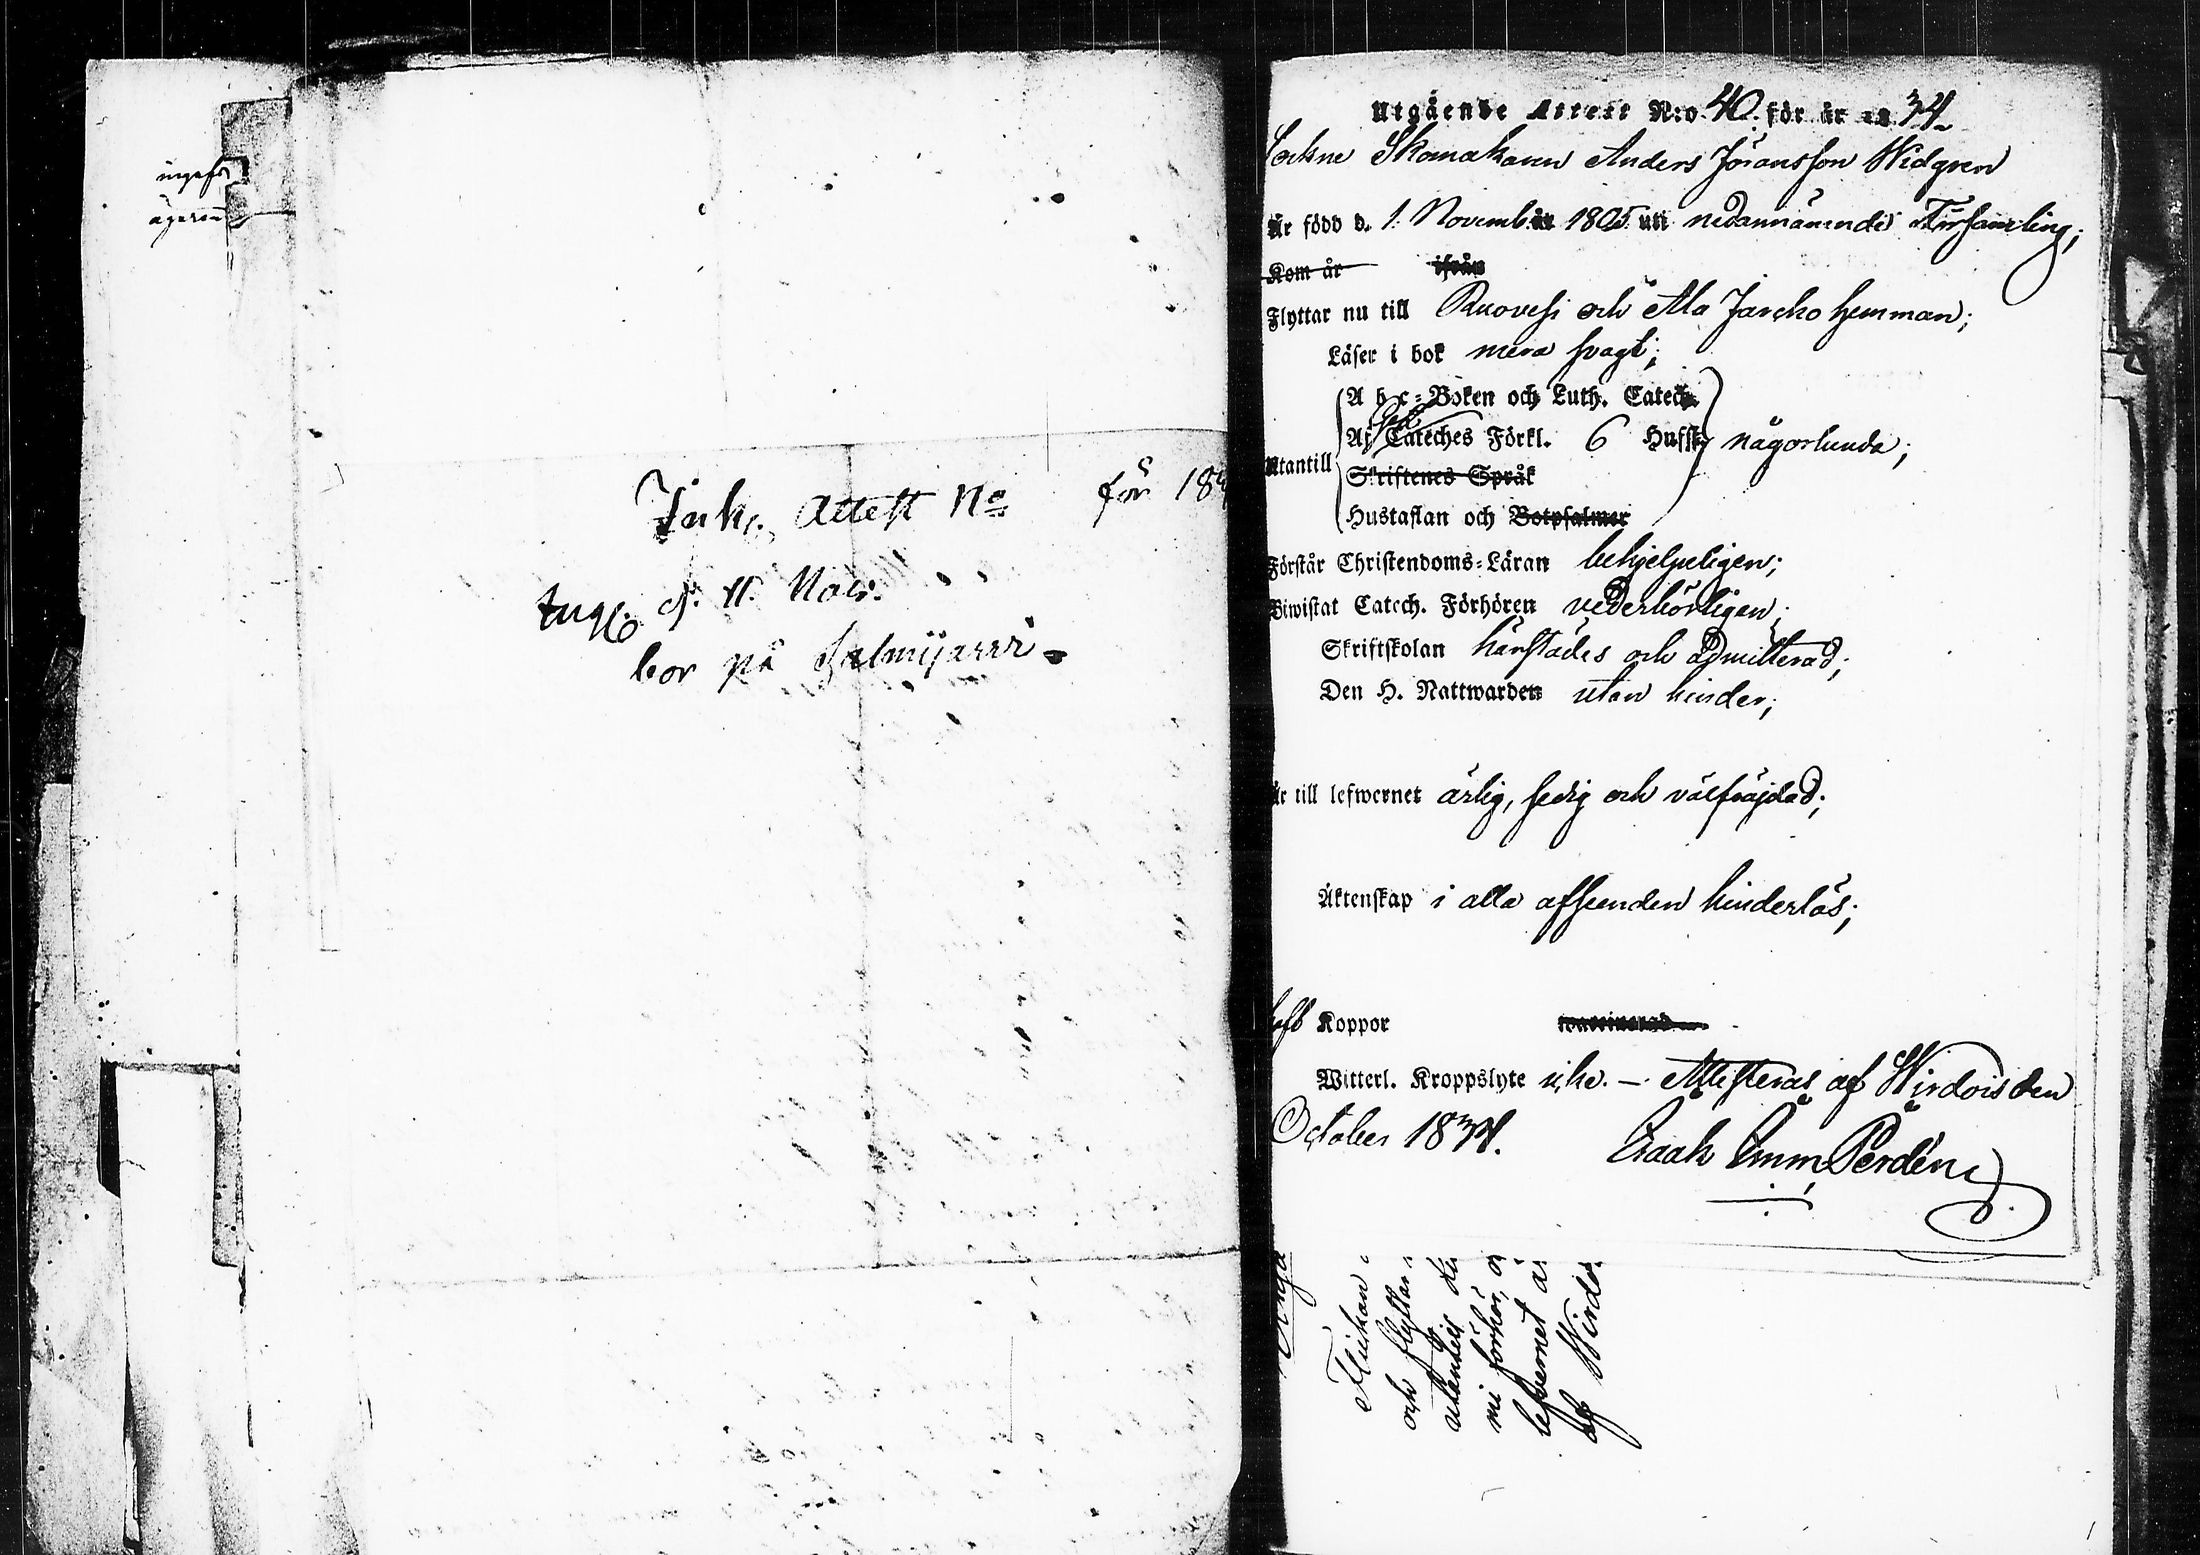 ingifv
ägaren
Ink. Attest No för 18
bor på Salmijarvi
Utgående Attest N:o 40. för år 1834.
Sockne Skomakaren Anders Jöransson Widgren
Är född d. 1. Novemb. år 1805. uti nedannämnde Församling;
Kom år ifrån
Flyttar nu till Ruovesi och Ala Jarcko hemman;
Läser i bok mera svagt;
A b c-Boken och Luth. Catech.
Af Cateches Förkl. 6 Hufst. någorlunda;
Utantill
Skriftenes Språk
Hustaflan och Botpsalmer
Förstår Christendoms-Läran behjelpeligen;
Biwistat Catech. Förhören vederbörligen;
Skriftskolan härstädes och admitterad;
Den H. Nattwarden utan hinder;
Är till lefwernet ärlig, sedig och välfräjdad;
Äktenskap i alla afseenden hinderlös;
haft Koppor waccinerad
Witterl. Kroppslyte icke. — Attesteras af Wirdois den
October 1834. Isaak Emm. Perdén
Flickan
och flyttar
utantill
ni förhör, o
lefvernet ä
af Wirdo